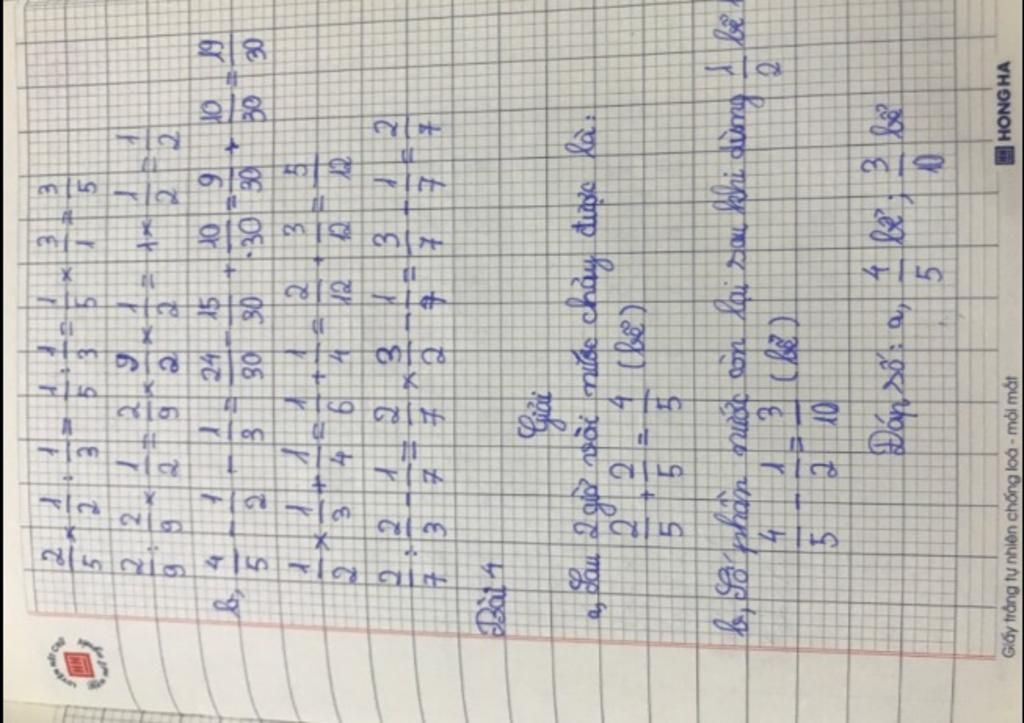 2/5 × 1/2 : 1/3 = 1/5 : 1/3 = 1/5 × 3/1 = 3/5
2/9 : 2/9 × 1/2 = 2/9 × 9/2 × 1/2 = 1 × 1/2 = 1/2
b, 4/5 - 1/2 - 1/3 = 24/30 - 15/30 + 10/30 = 9/30 + 10/30 = 19/30
1/2 × 1/3 + 1/4 = 1/6 + 1/4 = 2/12 + 3/12 = 5/12
2/7 : 2/3 - 1/7 = 2/7 × 3/2 - 1/7 = 3/7 - 1/7 = 2/7
Bài 4
Giải
a, Sau 2 giờ vòi nước chảy được là:
2/5 + 2/5 = 4/5 (bể)
b, Số phần nước còn lại sau khi dùng 1/2 bể
4/5 - 1/2 = 3/10 (bể)
Đáp số: a, 4/5 bể; 3/10 bể
Giấy trắng tự nhiên chống loá - mỏi mắt
HONG HA